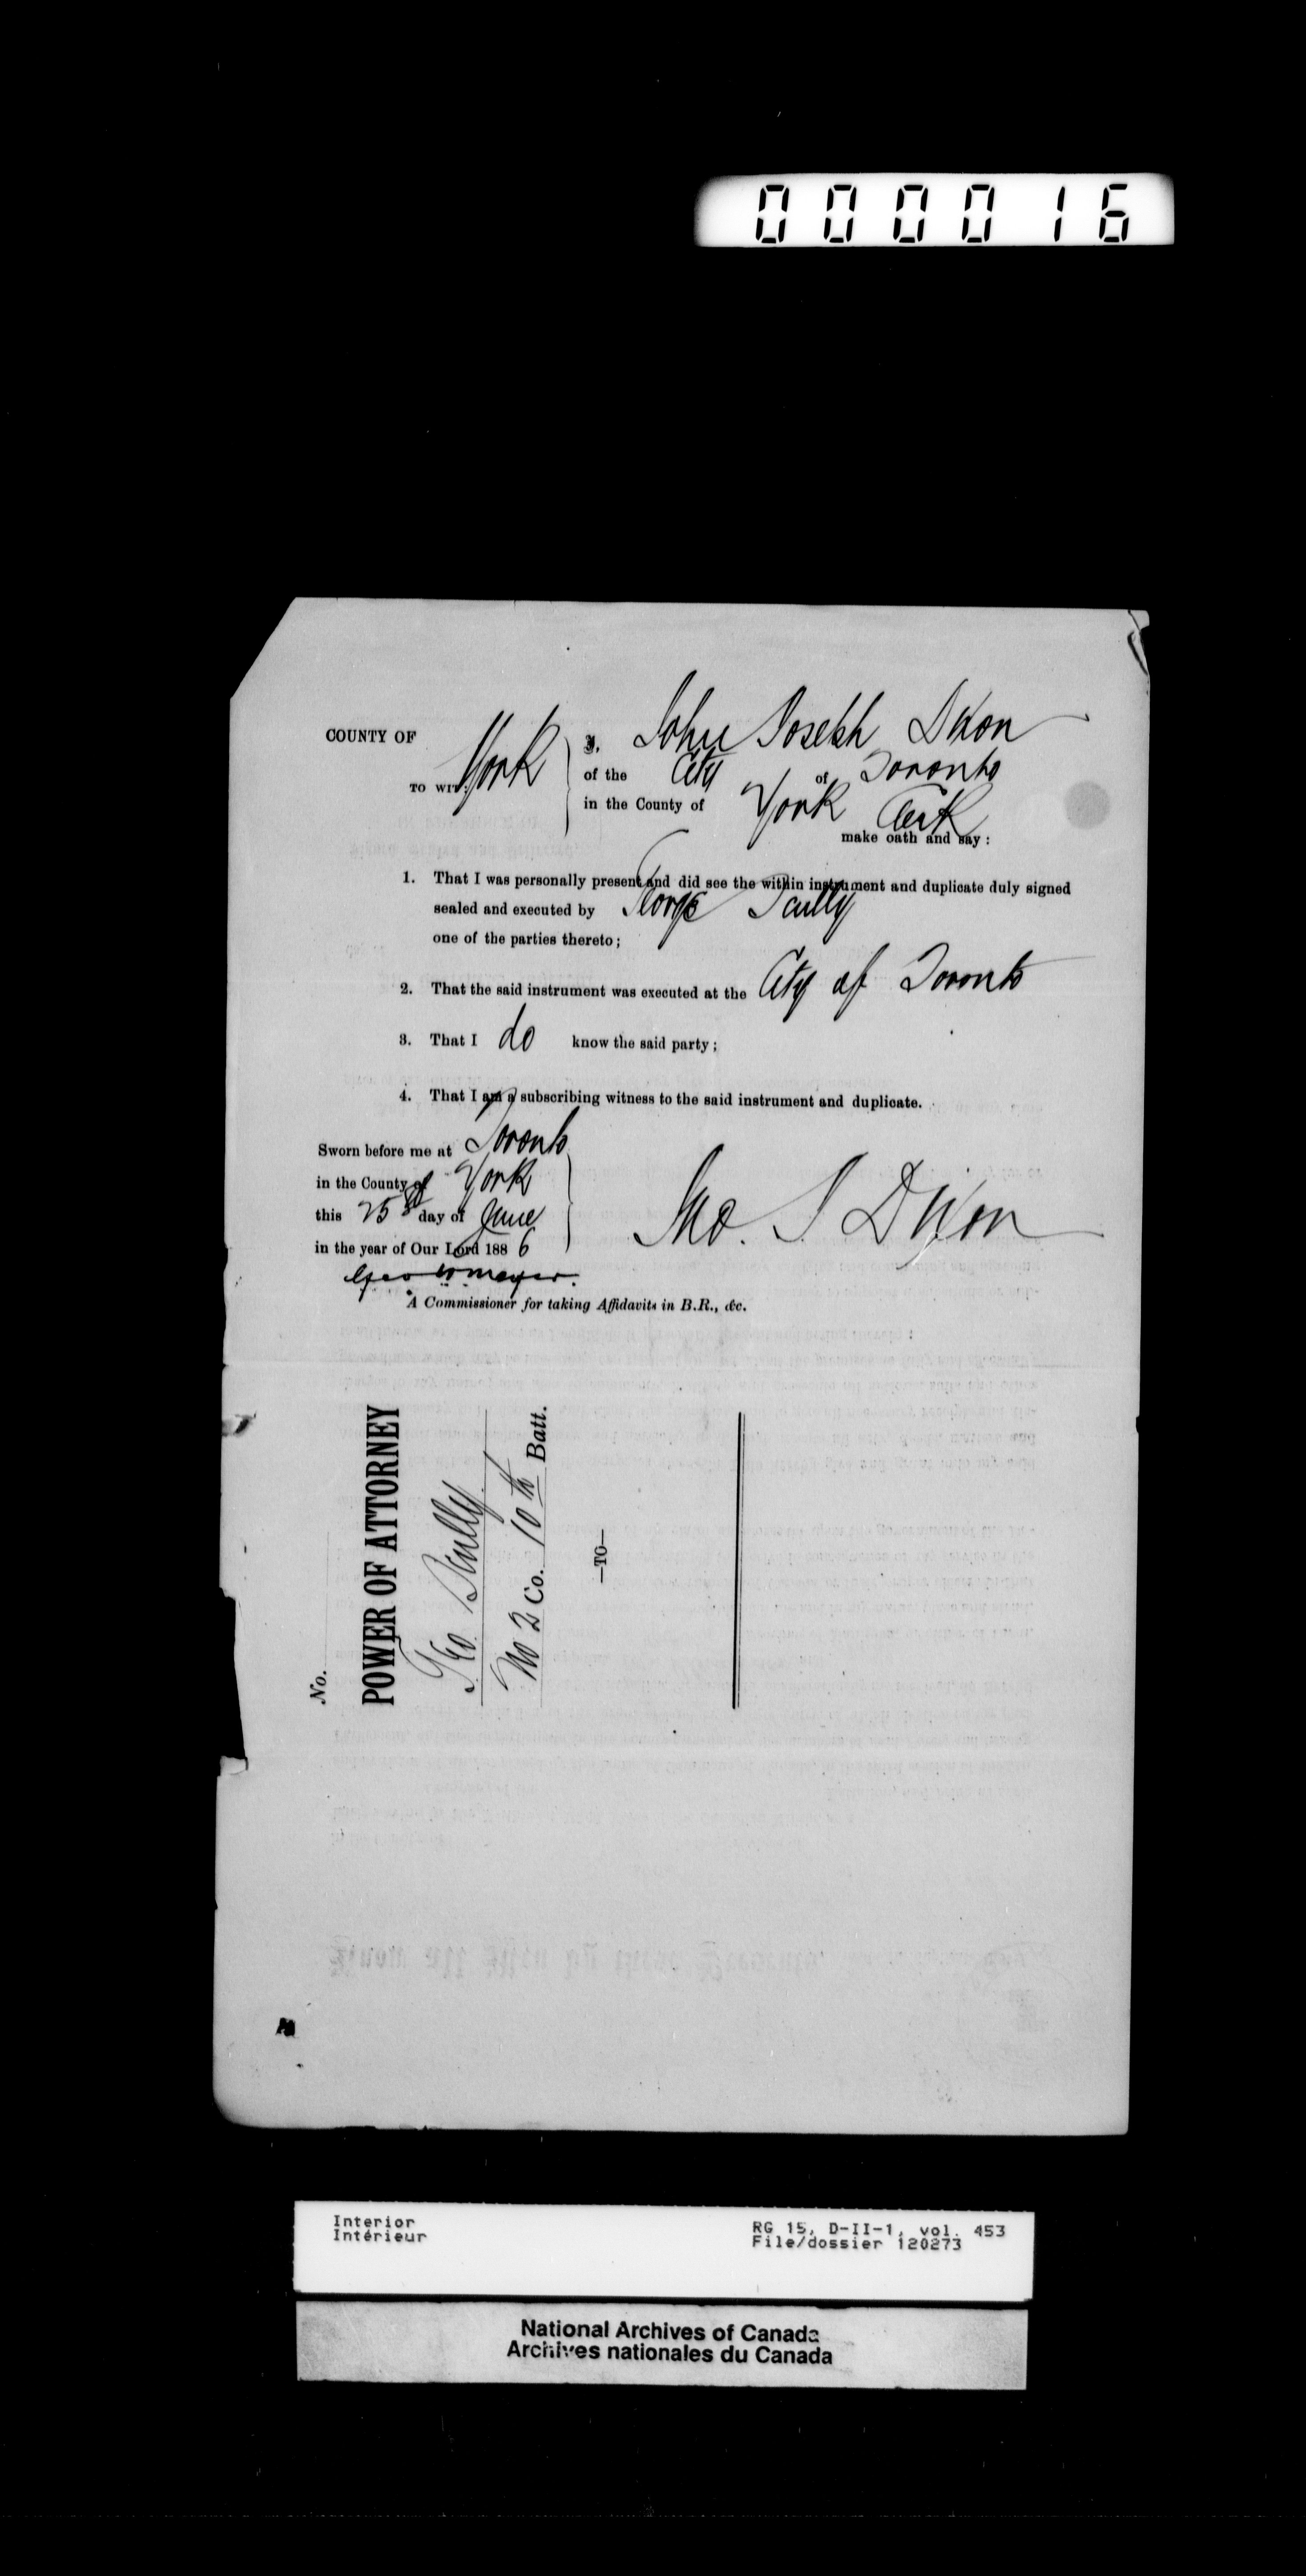 000016
COUNTY OF York
TO WIT:
I, John Joseph Dixon
of the City of Toronto
in the County of York Clerk
make oath and say:
1. That I was personally present and did see the within instrument and duplicate duly signed
sealed and executed by George Scully
one of the parties thereto;
2. That the said instrument was executed at the City of Toronto
3. That I do know the said party;
4. That I am a subscribing witness to the said instrument and duplicate.
Sworn before me at Toronto
in the County of York
this 25th day of June
in the year of Our Lord 1886
Jno. J Dixon
A Commissioner for taking Affidavits in B.R., &c.
No.
POWER OF ATTORNEY
Geo. Scully
No 2 Co. 10th Batt.
—TO—
Interior
Intérieur
RG 15, D-II-1, vol. 453
File/dossier 120273
National Archives of Canada
Archives nationales du Canada